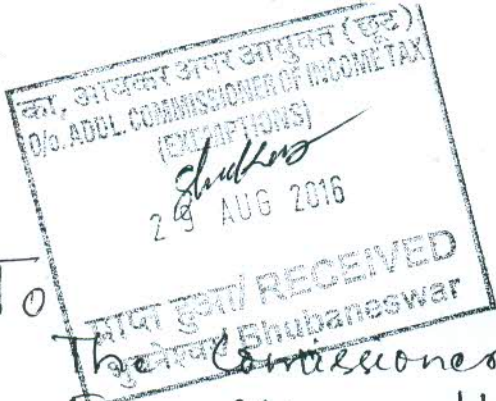 का, आयकर अपर आयुक्त (छूट)
O/o. ADDL. COMMISSIONER OF INCOME TAX
(EXEMPTIONS)
29 AUG 2016
To
प्राप्त हुआ/ RECEIVED
भुवनेश्वर/ Bhubaneswar
The Comissioner